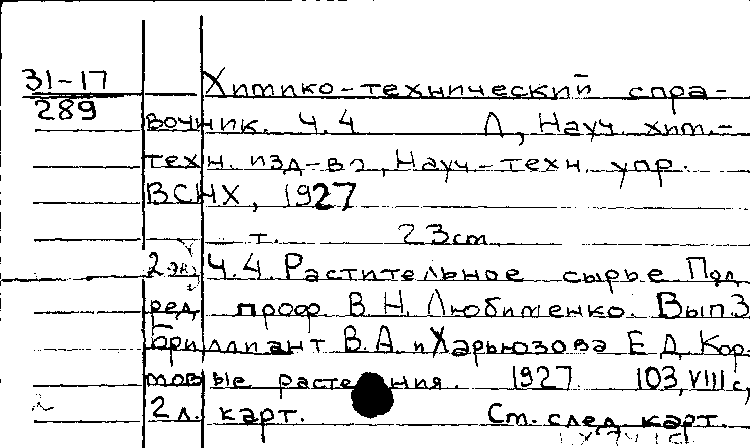 31-17
289
Химико-технический спра-
вочник. Ч.4 Л, Науч. хим.-
техн. изд-во, Науч-техн. упр.
ВСНХ, 1927
т. 23cm
2 эк. Ч.4. Растительное сырье Под
ред. проф. В.Н. Любименко. Вып 3
Бриллиант В.А. и Харьюзова Е.Д. Кор-
мовые растения. 1927. 103, VIII с,
2 л. карт. См. след. карт.